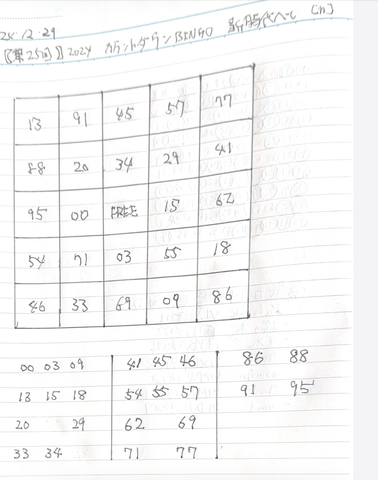 24.12.29
[第25回] 2024 カウントダウンBINGO 新時代へ [n]
13 91 45 57 77
88 20 34 29 41
95 00 FREE 15 62
54 71 03 55 18
46 33 69 09 86
00 03 09 41 45 46 86 88
13 15 18 54 55 57 91 95
20 29 62 69
33 34 71 77